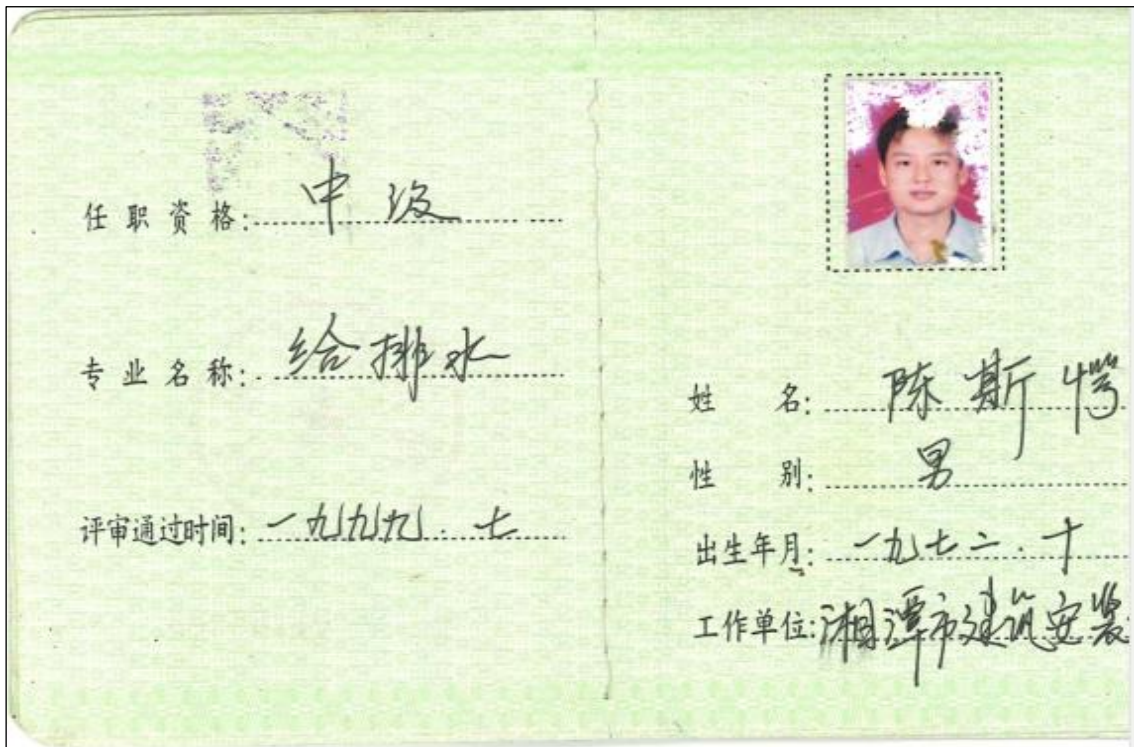 任职资格:中级
专业名称:给排水
评审通过时间:一九九九.七
姓名:陈斯愕
性别:男
出生年月:一九七二.十
工作单位:湘潭市建筑安装